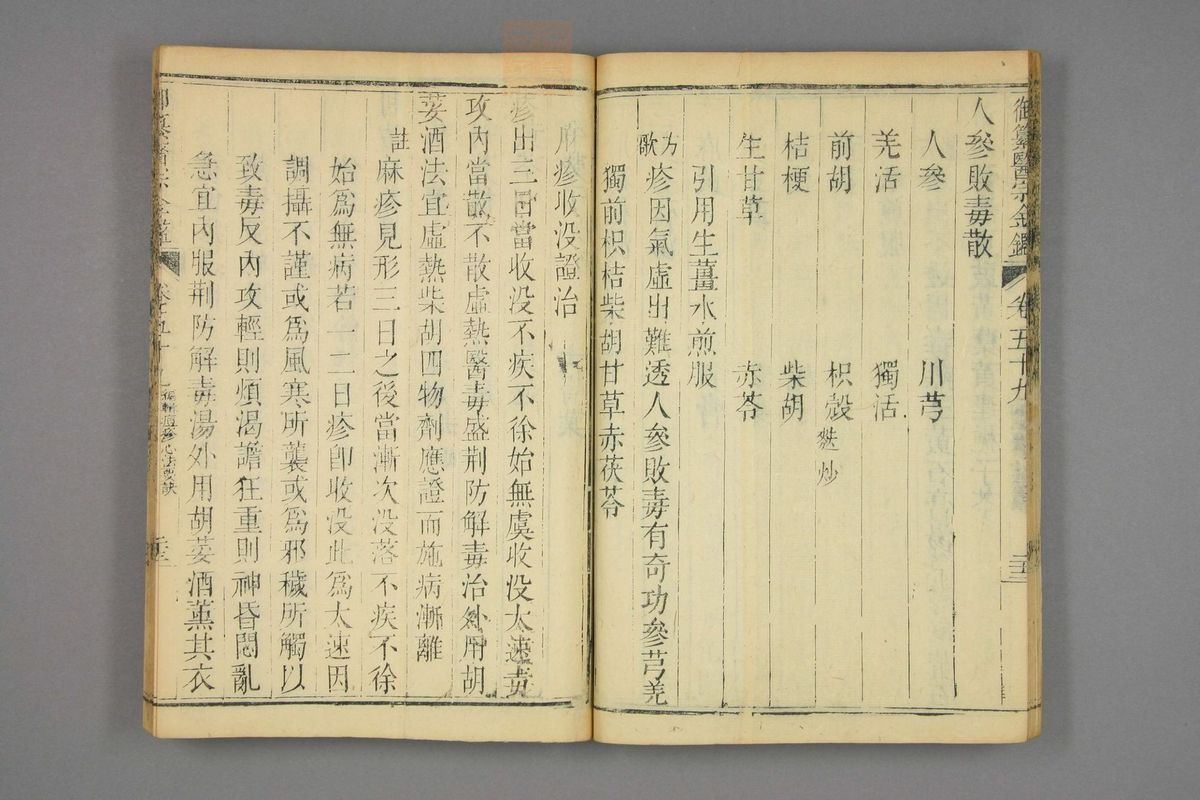 御纂醫宗金鑑 卷五十九
人參敗毒散
人參 川芎
羌活 獨活
前胡 枳殻 麩炒
桔梗 柴胡
生甘草 赤苓
引用生薑水煎服
方歌 疹因氣虛出難透人參敗毒有奇功參芎羌
獨前枳桔柴胡甘草赤茯苓
疹收没證治
疹出三日當收没不疾不徐始無虞收没太速毒
攻內當散不散虛熱醫毒盛荆防解毒治外用胡
荽酒法宜虛熱柴胡四物劑應證而施病漸離
註 麻疹見形三日之後當漸次没落不疾不徐
始爲無病若一二日疹卽收没此爲太速因
調攝不謹或爲風寒所襲或爲邪穢所觸以
致毒反內攻輕則煩渴譫狂重則神昏悶亂
急宜內服荆防解毒湯外用胡荽酒薰其衣